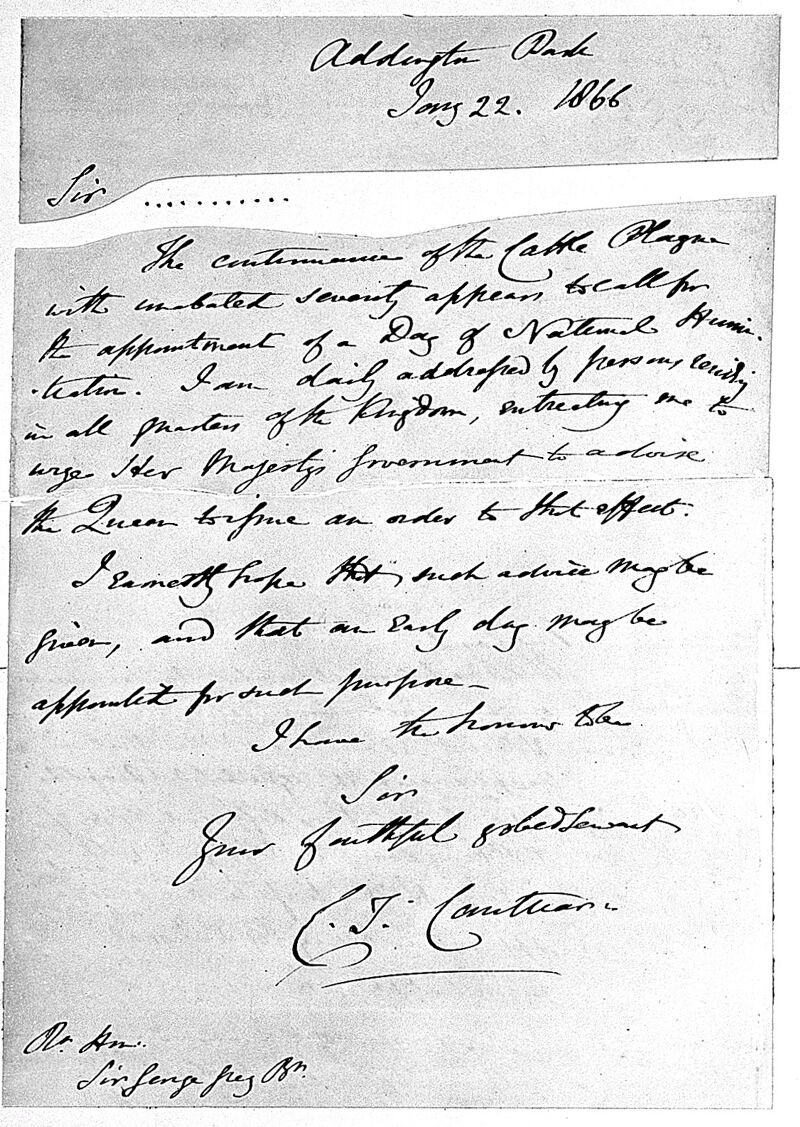 Addington Park
Jany 22. 1866
Sir ...........
The continuance of the Cattle Plague
with unabated severity appears to call for
the appointment of a Day of National Humi-
-liation. I am daily addressed by persons residing
in all quarters of the Kingdom, entreating me to
urge Her Majesty's Government to advise
the Queen to issue an order to that effect.
I earnestly hope that such advice may be
given, and that an early day may be
appointed for such purpose -
I have the honour to be
Sir
Your faithful & obed Servant
C. T. Cantuar:
Rt. Hon.
Sir George Grey Bt.